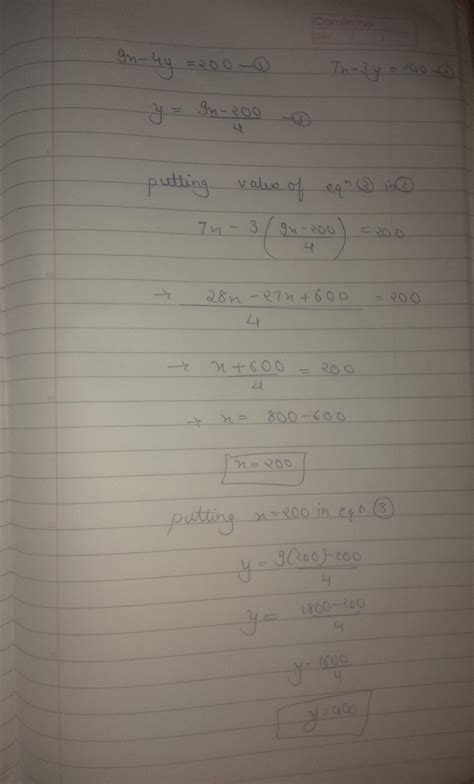 9x-4y=200-① 7x-3y=200-②
y = 9x-200/4 -③
putting value of eqⁿ ③ in ②
7x - 3(9x-200/4) = 200
→ 28x-27x+600/4 = 200
→ x+600/4 = 200
→ x = 800-600
x=200
putting x=200 in eqn ③
y = 9(200)-200/4
y = 1800-200/4
y = 1600/4
y=400